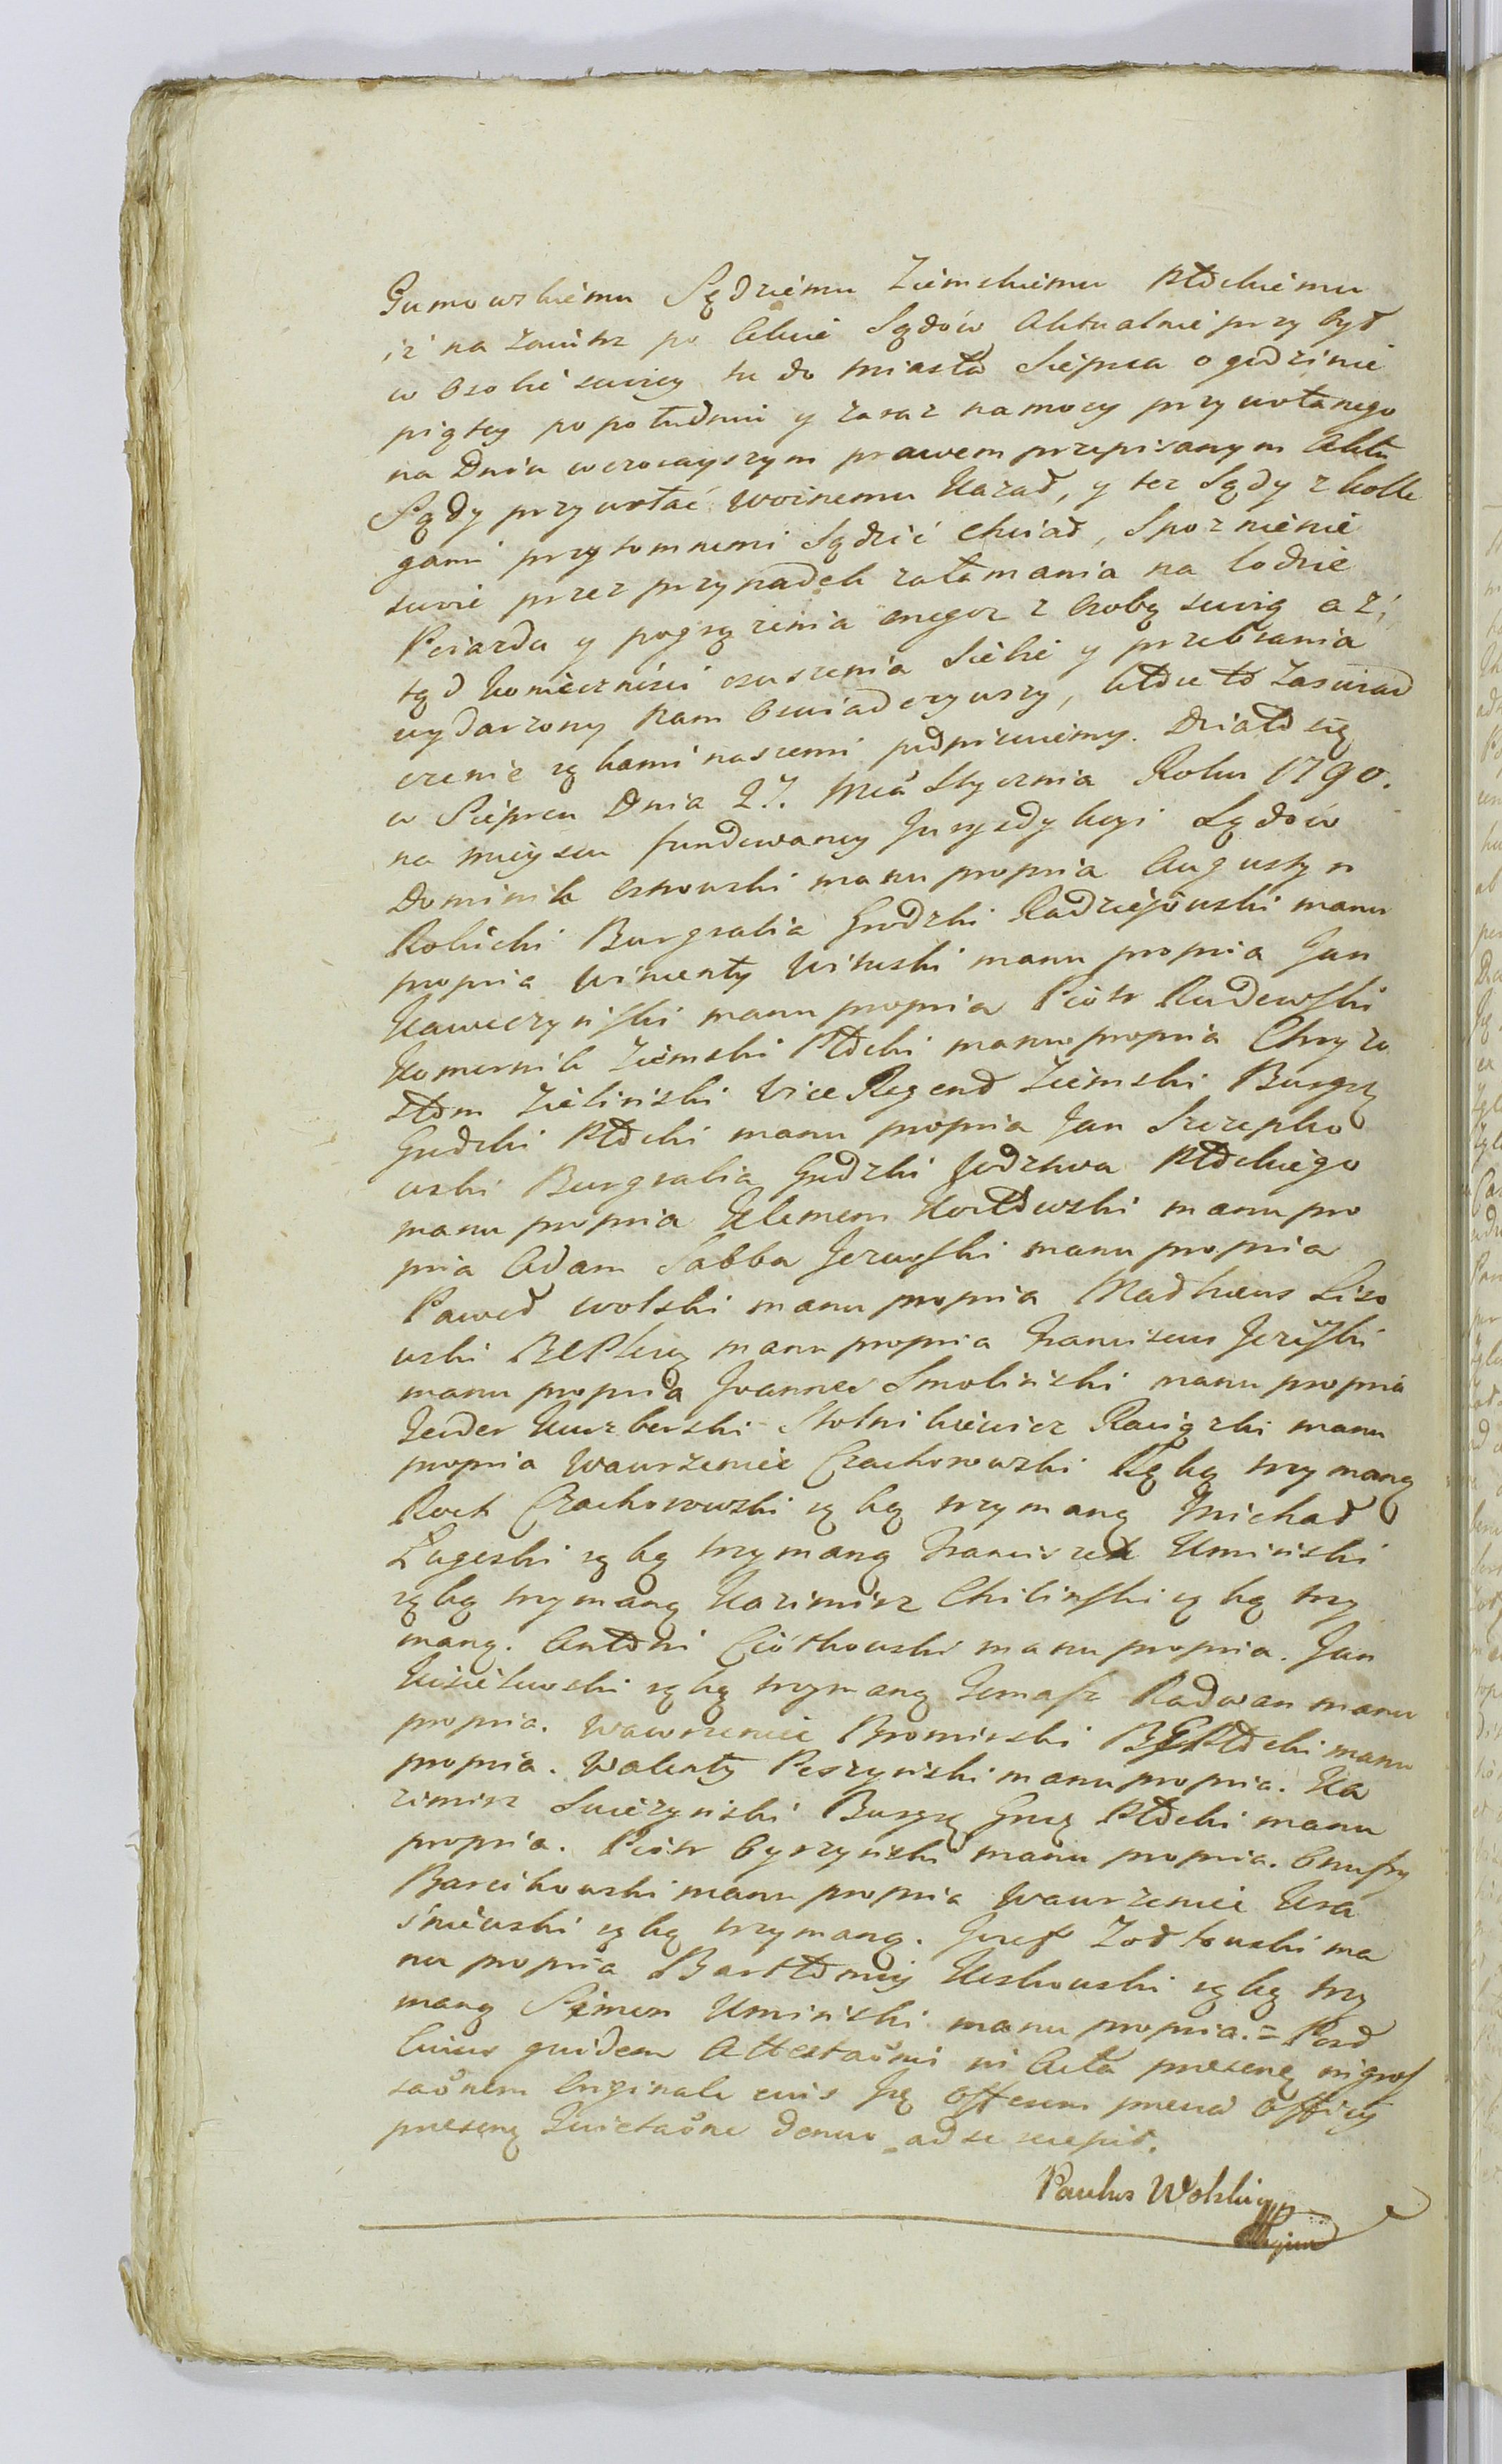 Gumowskiemu Sędziemu Ziemskiemu Płckiemu
iż na zaiutrz po Akcie Sądów Aktualnie przybył
w osobie swoiey tu do miasta Sierpca o godzinie
piątey popołudniu y zaraz na mocy przywołanego
na Dniu wczorayszym prawem przepisanym Aktu
Sądy przywołać Woźnemu Kazał, y też Sądy z kolle
gami przytomnemi Sądzić chciał, Spoznienie
swoie przez przypadek załamania na lodzie
Poiazdu y pogrążenia onegoż z osobą swoią a z
tąd konieczności osuszenia Siebie y przebrania
wydarzony Nam oswiadczywszy, któreto Zaswiad
czenie rękami naszemi podpisuiemy. Działo się
w Sierpcu Dnia 27. Mca Stycznia Roku 1790.
na mieyscu fundowaney Juryzdykcyi Sądów
Dominik manu propria Augustyn
Robicki Burgrabia Grodzki Radziejowski manu
propria Wincenty manu propria Jan
Kawczyński manu propria Piotr Rudowski
Komornik Ziemski Płcki manu propria Chryzo
stom Zieliński Vice Regend Ziemski Burgr
Grodzki Płcki manu propria Jan Szczepko
wski Burgrabia Grodzki Wodztwa Płckiego
manu propria Klemens manu pro
pria Adam Sabba Jerzewski manu propria
Paweł Wolski manu propria Mathaeus Liso
wski manu propria Franciscus
manu propria Joannes Smoliński manu propria
Stolnikiewicz manu
propria Wawrzeniec Czachorowski Ręką trzymaną
Roch Czachorowski ręką trzymaną Michał
Ługoski ręką trzymaną Franciszek Umiński
ręką trzymaną Kazimirz Chiliński ręką trzy
maną. Antoni Ciółkowski manu propria. Jan
Kisielewski ręką trzymaną Tomasz Radwan manu
propria. Wawrzeniec Bromirski BG Płcki manu
propria. Walenty Peszyński manu propria. Ka
zimirz Swieżyński Burgr Grod Płcki manu
propria. Piotr manu propria. Onufry
Barcikowski manu propria Wawrzeniec Kra
śniewski ręką trzymaną. Jozef Żołtowski ma
nu propria Bartłomiey Koskowski ręką trzy
maną Szimon Umiński manu propria. = Post
Cuius quidem Attestaōnis in Acta praesen ingros
saōnem Originale eius Idem Offerens praevia Officij
praesen Quietaōne denuo ad se recepit.
Paulus Wolski